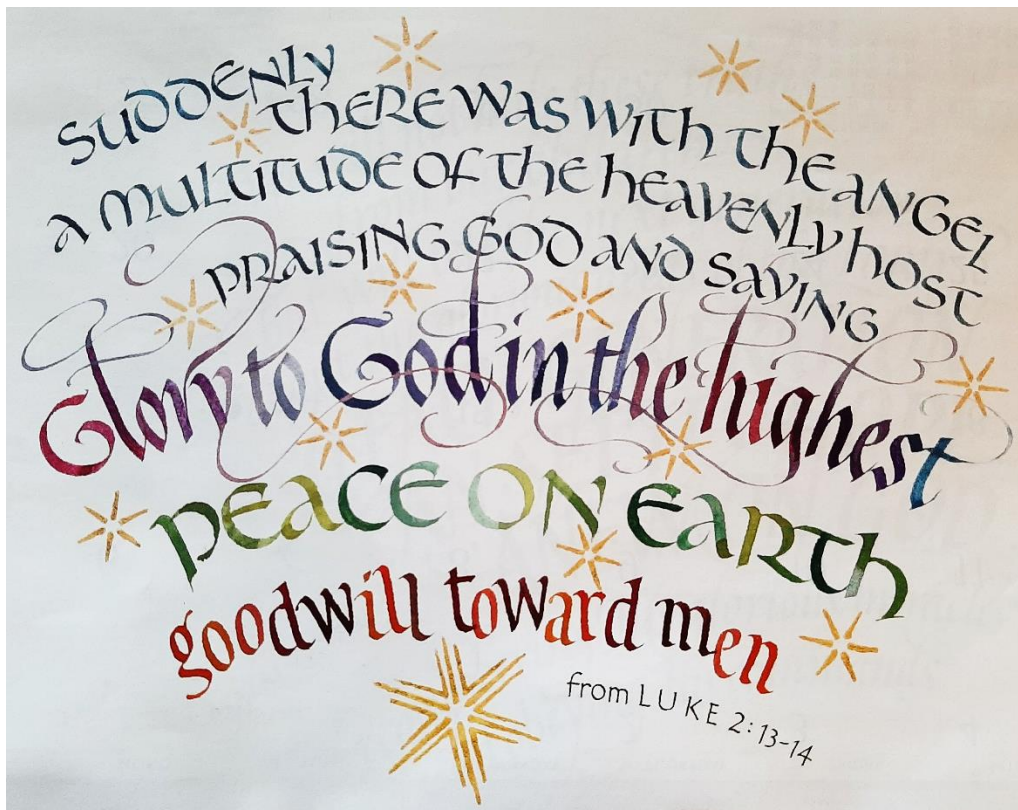 SUDDENLY
THERE WAS WITH THE ANGEL
A MULTITUDE OF THE HEAVENLY HOST
PRAISING GOD AND SAYING
Glory to God in the highest
PEACE ON EARTH
goodwill toward men
from LUKE 2:13-14